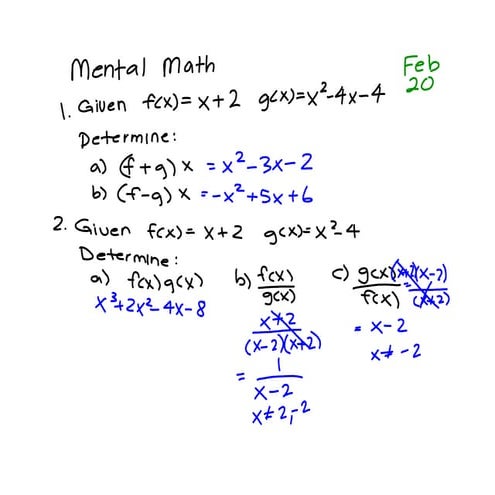 Mental Math
Feb
20
1. Given f(x)=x+2 g(x)=x²-4x-4
Determine:
a) (f+g)x =x²-3x-2
b) (f-g)x =-x²+5x+6
2. Given f(x)=x+2 g(x)=x²-4
Determine:
a) f(x)g(x)
x³+2x²-4x-8
b) f(x)/g(x)
x+2/(x-2)(x+2)
= 1/x-2
x≠2,-2
c) g(x)/f(x) = (x+2)(x-2)/(x+2)
= x-2
x≠-2